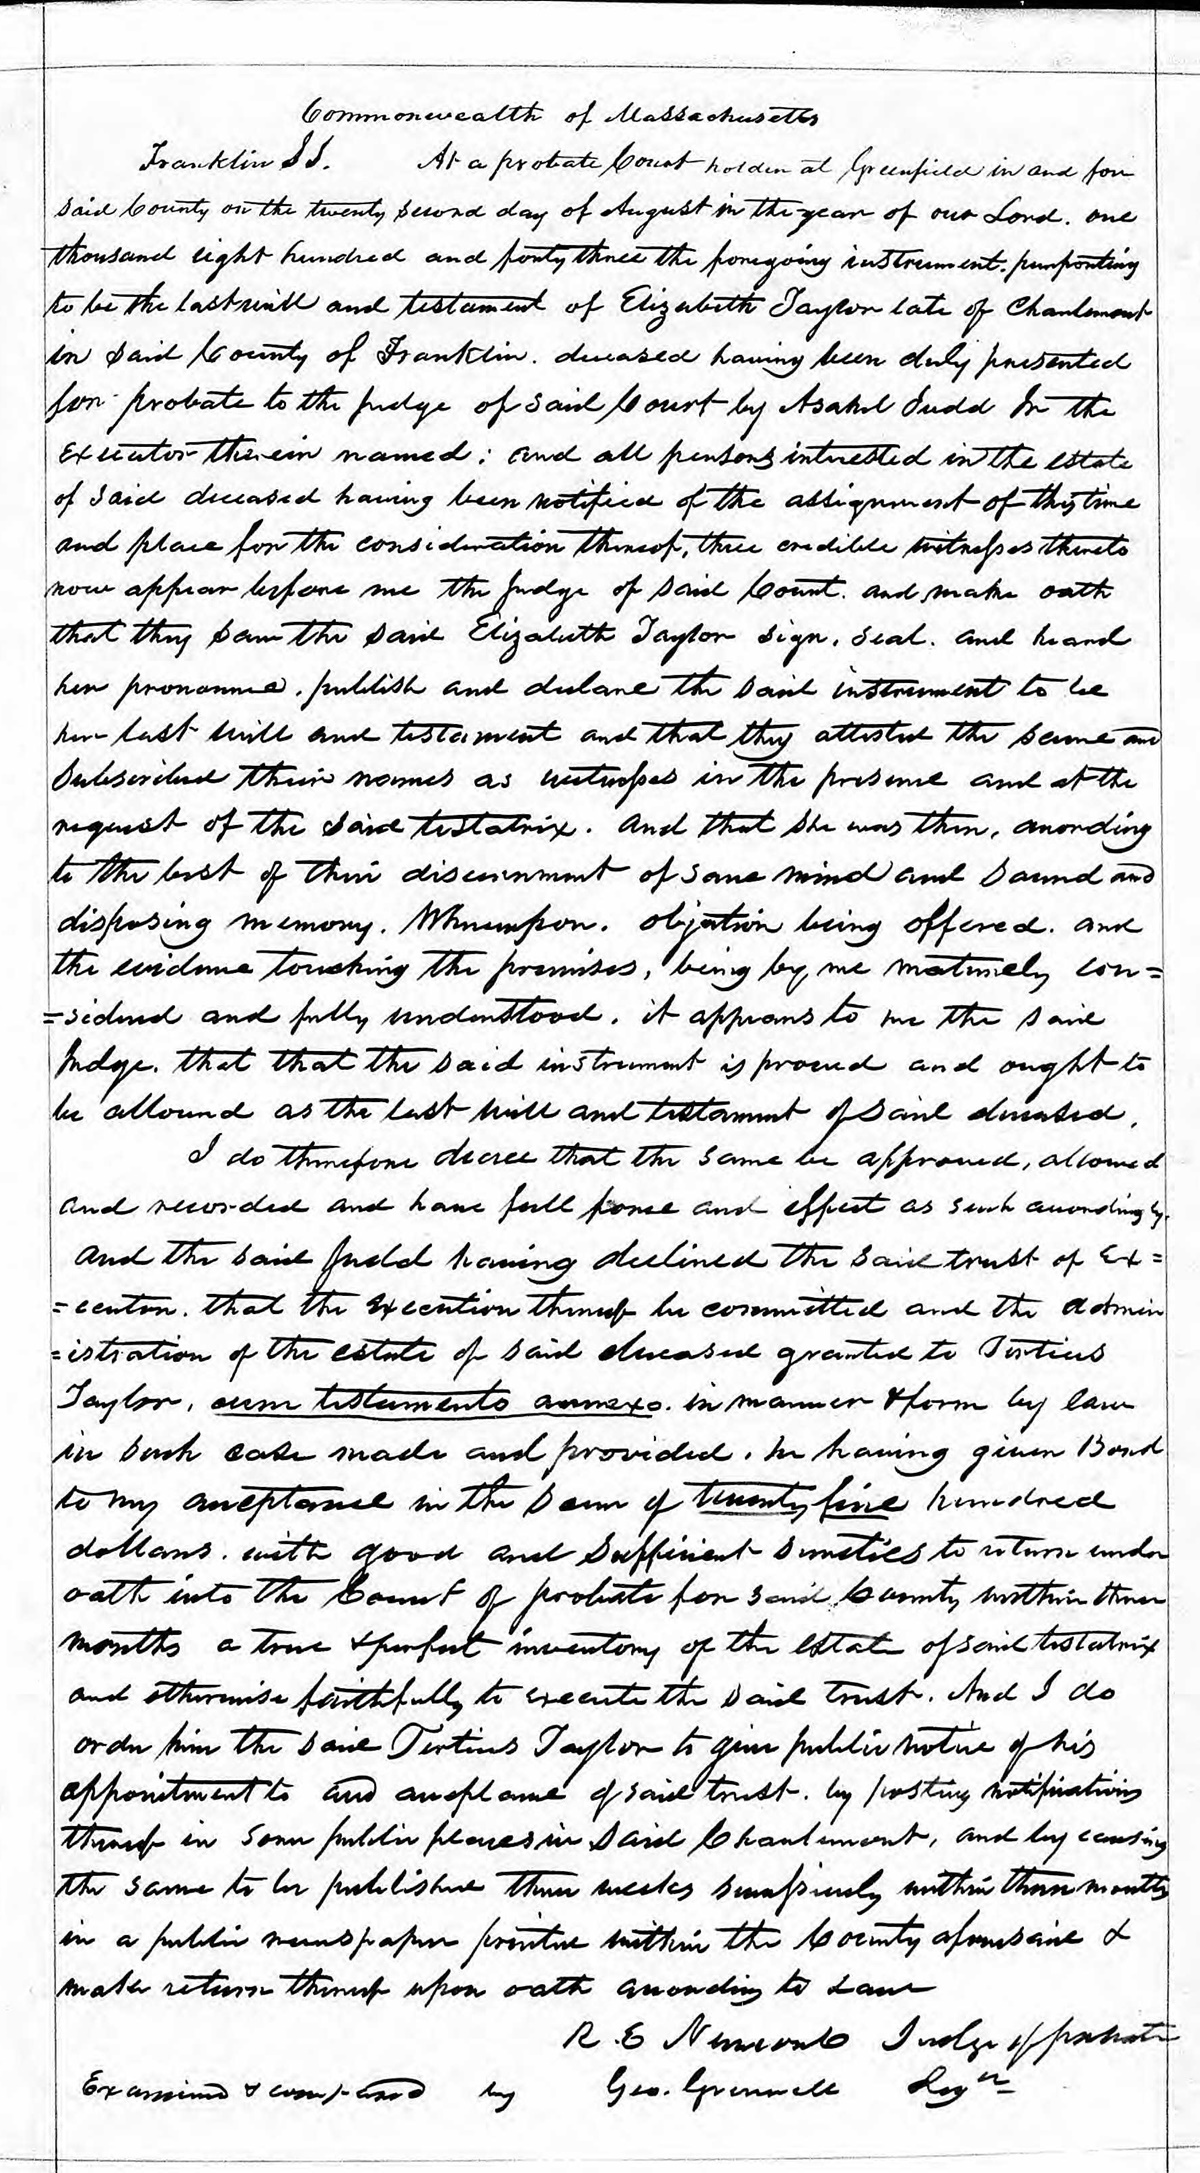 Commonwealth of Massachusetts
Franklin SS. At a probate Court holden at Greenfield in and for
said County on the twenty second day of August in the year of our Lord. one
thousand eight hundred and forty three the foregoing instrument. purporting
to be the last will and testament of Elizabeth Taylor late of Charlemont
in said County of Franklin. deceased having been duly presented
for probate to the judge of said Court by Asahel Judd Jr the
Executor therein named; and all persons interested in the estate
of said deceased having been notified of the assignment of this time
and place for the consideration thereof, three credible witnesses thereto
now appear before me the Judge of said Court. and make oath
that they saw the said Elizabeth Taylor sign, seal. and heard
her pronounce. publish and declare the said instrument to be
her last will and testament and that they attested the same and
subscribed their names as witnesses in the presence and at the
request of the said testatrix. and that she was then, according
to the best of their discernment of sane mind and sound and
disposing memory. Whereupon. objection being offered. and
the evidence touching the premises, being by me maturely con=
=sidered and fully understood. it appears to me the said
Judge. that that the said instrument is proved and ought to
be allowed as the last will and testament of said deceased.
I do therefore decree that the same be approved, allowed
and recorded and have full force and effect as such accordingly.
And the said Judd having declined the said trust of Ex=
=ecutor. that the Execution thereof be committed and the admin
=istration of the estate of said deceased granted to Tertius
Taylor, cum testamento annexo. in manner & form by law
in such case made and provided. he having given Bond
to my acceptance in the sum of twenty five hundred
dollars. with good and sufficient sureties to return under
oath into the Court of probate for said County within three
months a true & perfect inventory of the estate of said testatrix
and otherwise faithfully to execute the said trust. And I do
order him the said Tertius Taylor to give public notice of his
appointment to and acceptance of said trust. by posting notifications
thereof in some public places in said Charlemont, and by causing
the same to be published three weeks successively within three months
in a public newspaper printed within the County aforesaid &
make return thereof upon oath according to Law
R. E Newcomb Judge of probate
Examined & compared by Geo. Grennell Reg er